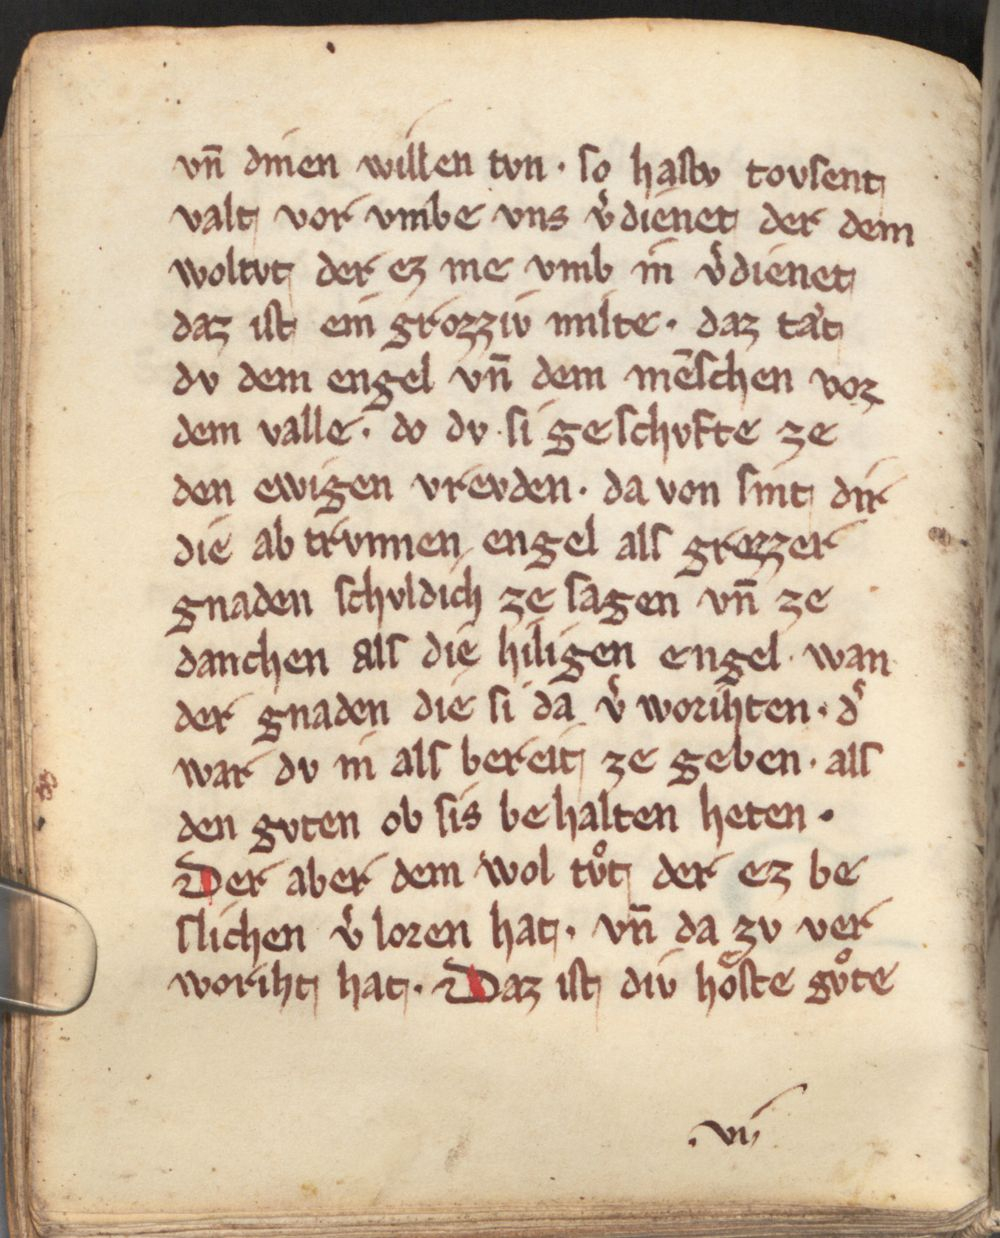 vn̄ dinen willen tvn · so hastv tovsent
valt vor vmbe vns v̾dienet der dem
woltvt der ez me vmb in v̾dienet
daz ist ein grozziv milte · daz tæt
dv dem engel vn̄ dem mēschen vor
dem valle · do dv si geschvfte ze
den ewigen vrevden · da von sint dir
die ab trvnnen engel als grozzer
gnaden schvldich ze sagen vn̄ ze
danchen als die hiligen engel · wan
der gnaden die si da v̾ worihten · d̾
war dv in als bereit ze geben · als
den gvten ob sis be halten heten ·
Der aber dem wol tvͦt der ez be
slichen v̾ loren hat · vn̄ da zv ver
woriht hat · Daz ist div hoͤste gvͦte
· vii